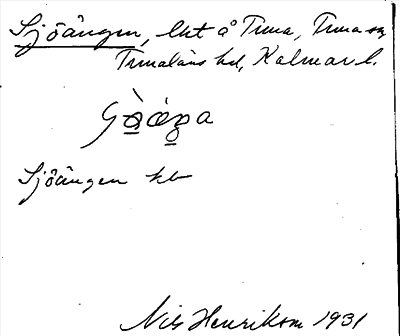 Sjöängen, lht å Tuna, Tuna sn,
Tunaläns hd, Kalmar l.
Sjöängen kb
Nils Henrikson 1931